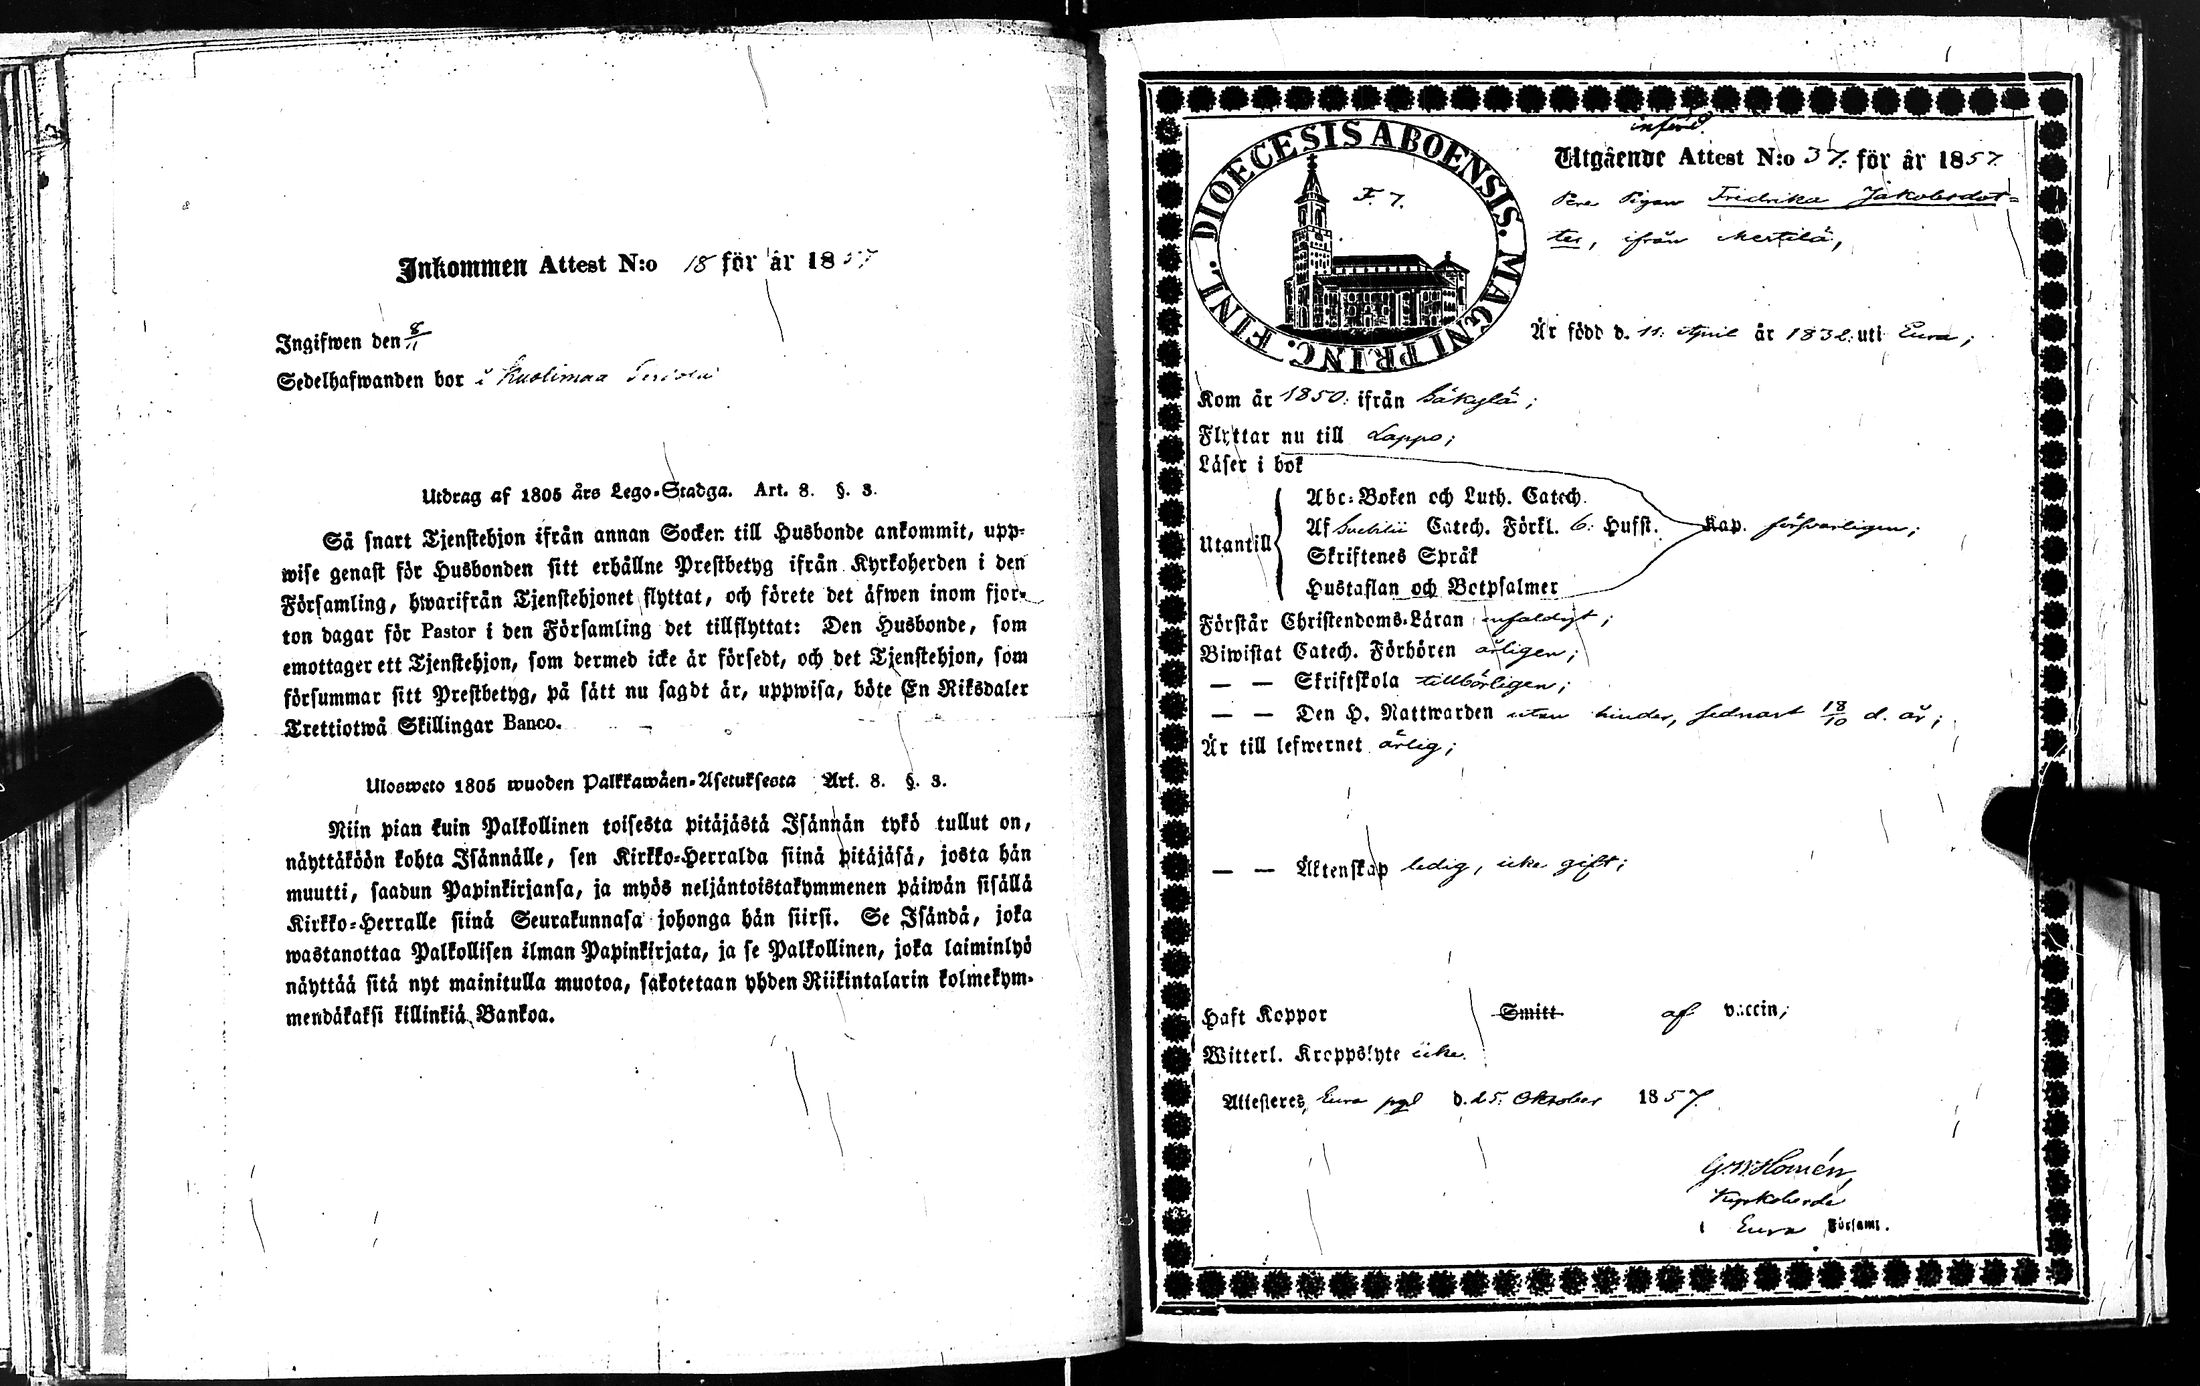 Inkommen Attest N:o 18 för år 1857
Ingifwen den 8/11
Sedelhafwanden bor i Kuolimaa
Utdrag af 1805 års Lego-Stadga. Art. 8. §. 3.
Så snart Tjenstehjon ifrån annan Socken till Husbonde ankommit, upp-
wise genast för Husbonden sitt erhållne Prestbetyg ifrån Kyrkoherden i den
Församling, hwarifrån Tjenstehjonet flyttat, och förete det äfwen inom fjor-
ton dagar för Pastor i den Församling det tillflyttat: Den Husbonde, som
emottager ett Tjenstehjon, som dermed icke är försedt, och det Tjenstehjon, som
försummar sitt Prestbetyg, på sätt nu sagdt är, uppwisa, böte En Riksdaler
Trettiotwå Skillingar Banco.
Ulosweto 1805 wuoden Palkkawäen-Asetuksesta Art. 8. §. 3.
Niin pian kuin Palkollinen toisesta pitäjästä Isännän tykö tullut on,
näyttäköön kohta Isännälle, sen Kirkko-Herralda siinä pitäjäsä, josta hän
muutti, saadun Papinkirjansa, ja myös neljäntoistakymmenen päiwän sisällä
Kirkko-Herralle siinä Seurakunnasa johonga hän siirsi. Se Isändä, joka
wastanottaa Palkollisen ilman Papinkirjata, ja se Palkollinen, joka laiminlyö
näyttää sitä nyt mainitulla muotoa, sakotetaan yhden Riikintalarin kolmekym-
mendäkaksi killinkiä Bankoa.
DIOECESIS ABOENSIS. MAGNI PRINC. FINL.
F. 7.
införd.
Utgående Attest N:o 37. för år 1857.
Pigan Fredrika Jakobsdot=
ter, ifrån Mestilä,
Är född d. 11. April år 1832. uti Eura;
Kom år 1850. ifrån Säkylä;
Flyttar nu till Lappo;
Läser i bok
Utantill
Abc-Boken och Luth. Catech.
Af Svebilii Catech. Förkl. 6. Hufst. Kap. försvarligen;
Skriftenes Språk
Hustaflan och Botpsalmer
Förstår Christendoms-Läran enfaldigt;
Biwistat Catech. Förhören årligen;
— — Skriftskola tillbörligen;
— — Den H. Nattwarden utan hinder, sednast 18/10 d. år;
Är till lefwernet ärlig;
— — Äktenskap ledig, icke gift;
Haft Koppor Smitt af vaccin;
Witterl. Kroppslyte icke.
Attesteres, Eura pgl d. 25. Oktober 1857.
G. W. Homén,
Kyrkoherde
i Eura Församl.